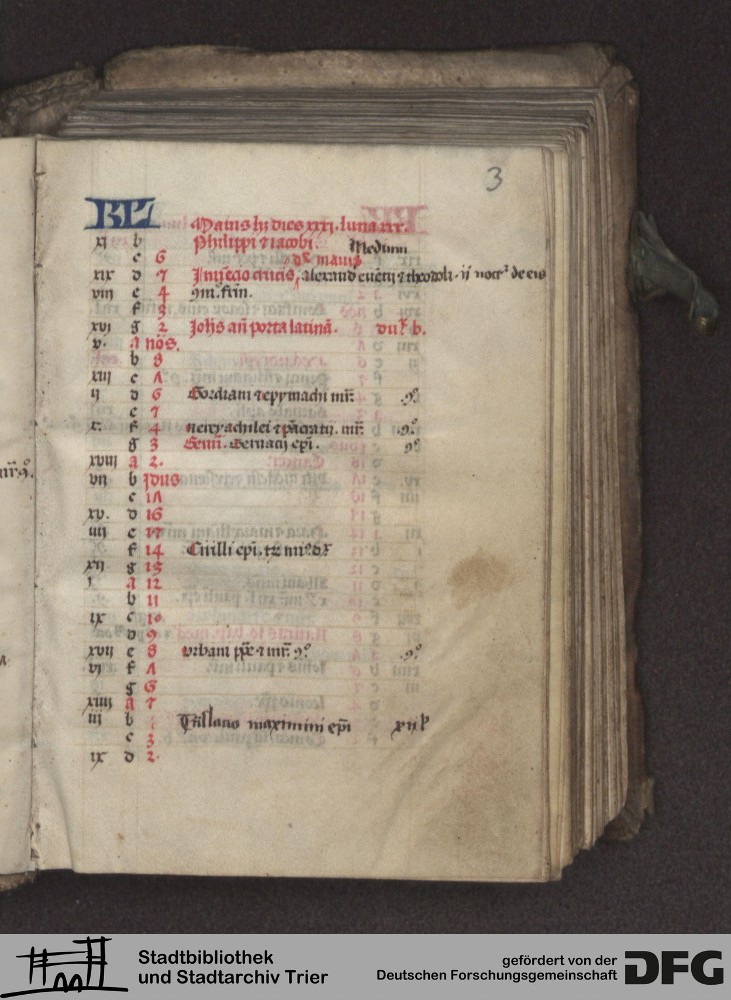 3
KL Maius ht dies xxxi. luna xxx.
xi b Philippi ⁊ iacobi. Medunn
c 6 dx maius
xix d 7 Inuecio crucis, alexand euetij ⁊ theodoli. ij noct de eis
viii e 4 9m. frin.
f 3
xvi g 2 Johis an porta latina. dux b.
v. a nōs.
b 8
xiii c Λ
ii d 6 Gordiani ⁊ epymachi mr̄. 9?
e 7
x f 4 nerey achilei ⁊ pācratij. mr̄ 9?
g 3 Seruacij epi. 9?
xviii a 2.
vii b Jdus
c 1Λ
xv. d 16
iiii e 17
f 14 epi.
xii g 13
i a 12
b 11
ix c 10
d 9
xvii e 8 vrbani pp̄e ⁊ mr̄. 9? 9?
vi f Λ
g 6
xiiii a 7
iii b Tnslatio maximini epī xii l
c 3
ix d 2.
Stadtbibliothek
und Stadtarchiv Trier
gefördert von der
Deutschen Forschungsgemeinschaft
DFG